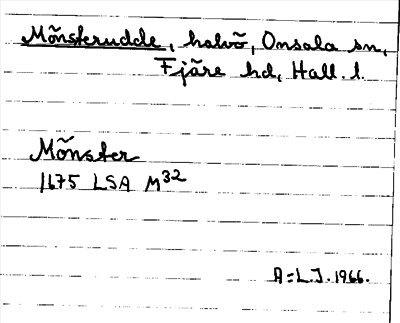 Mönsterudde, halvö, Onsala sn,
Fjäre hd, Hall. l.
Mönster
1675 LSA M32
A=L.J. 1966.